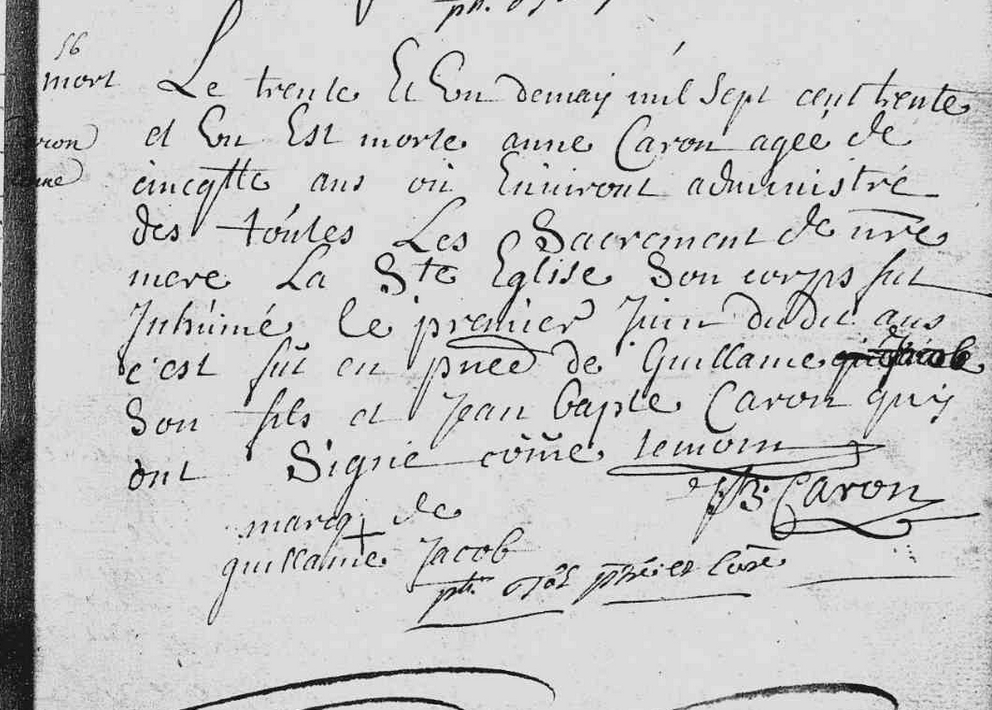 56
mort
Le trente Et Un demay mil Sept cent trente
et Un Est morte anne Caron agée de
cincqtte ans oú Enuiront administré
des toútes Les Sacrement de nre
mere La Ste Eglise Son corps fut
Jnhúmé le premier Juin dudit ans
c'est fút en pnce de Guillaume Jacob
Son fils et Jean bapte Caron quÿ
ont Signé cõme temoin
J:B: Caron
marcq de
guillaume Jacob
pbre et Curé